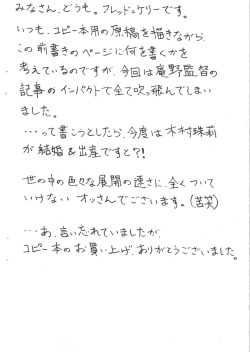 みなさん、どうも。フレッド=ケリーです。
いつも、コピー本用の原稿を描きながら
この前書きのページに何を書くかを
考えているのですが、今回は庵野監督の
記事のインパクトで全て吹っ飛んでしまい
ました。
…って書こうとしたら、今度は木村珠莉
が結婚&出産ですと?!
世の中の色々な展開の速さに、全くついて
いけない オッさんでございます。(苦笑)
…あ、言い忘れていましたが、
コピー本のお買い上げ、ありがとうございました。